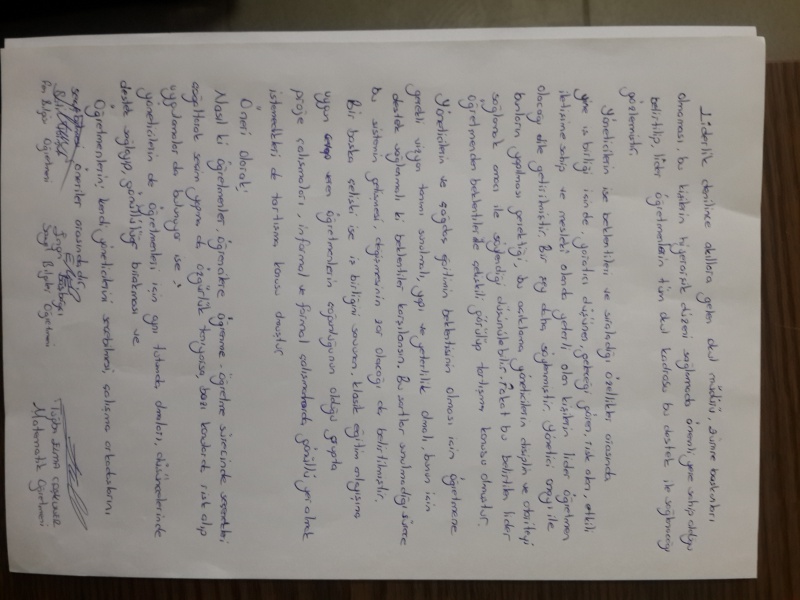 Liderlik denilince akıllara gelen okul müdürü, zümre başkanları
olmaması, bu kişilerin hiyerarşik düzeni sağlamada önemli yere sahip olduğu
belirtilip, lider öğretmenlerin tüm okul kadrosu bu destek ile sağlanacağı
gözlemiştir.
Yöneticilerin ise beklentileri ve sıraladığı özellikler arasında
yine iş birliği içinde, yaratıcı düşünen, geleceği gören, risk alan, etkili
iletişime sahip ve mesleki alanda yeterli olan kişilerin lider öğretmen
olacağı dile getirilmiştir. Bir şey daha söylenmiştir. Yönetici onayı ile
bunların yapılması gerektiği, bu açıklama yöneticilerin disiplin ve otoriteyi
sağlamak amacı ile söylendiği düşünülebilir. Fakat bu belirtilen lider
öğretmenden beklentilerle çelişkili görülüp tartışma konusu olmuştur.
Yöneticilerin ve çağdaş eğitimin beklentisinin olması için öğretmene
gerekli vizyon tanımı sunulmalı, yapı ve yeterlilik olmalı, bunun için
destek sağlanmalı ki beklentiler karşılansın. Bu şartlar sunulmadığı sürece
bu sistemin gelişmesi, değişmesinin zor olacağı da belirtilmiştir.
Bir başka çelişki ise iş birliğini savunan, klasik eğitim anlayışına
uygun veren öğretmenlerin çoğunluğunun olduğu grupta
proje çalışmaları, informal ve formal çalışmalarda gönüllü yer almak
istemedikleri de tartışma konusu olmuştur.
Öneri olarak;
Nasıl ki öğretmenler, öğrencilere öğrenme - öğretme sürecinde seçenekleri
azaltarak seçim yapma da özgürlük tanıyorsa, bazı konularda risk alıp
uygulamalar da bulunuyor ise;
yöneticilerin de öğretmenleri için aynı tutumda olmaları, düşüncelerinde
destek sağlayıp, gönüllülüğe bırakması ve
Öğretmenlerin; kendi yöneticilerini seçebilmesi, çalışma arkadaşlarını
öneriler arasındadır.
Fen Bilgisi Öğretmeni
Sosyal Bilgiler Öğretmeni
Matematik Öğretmeni